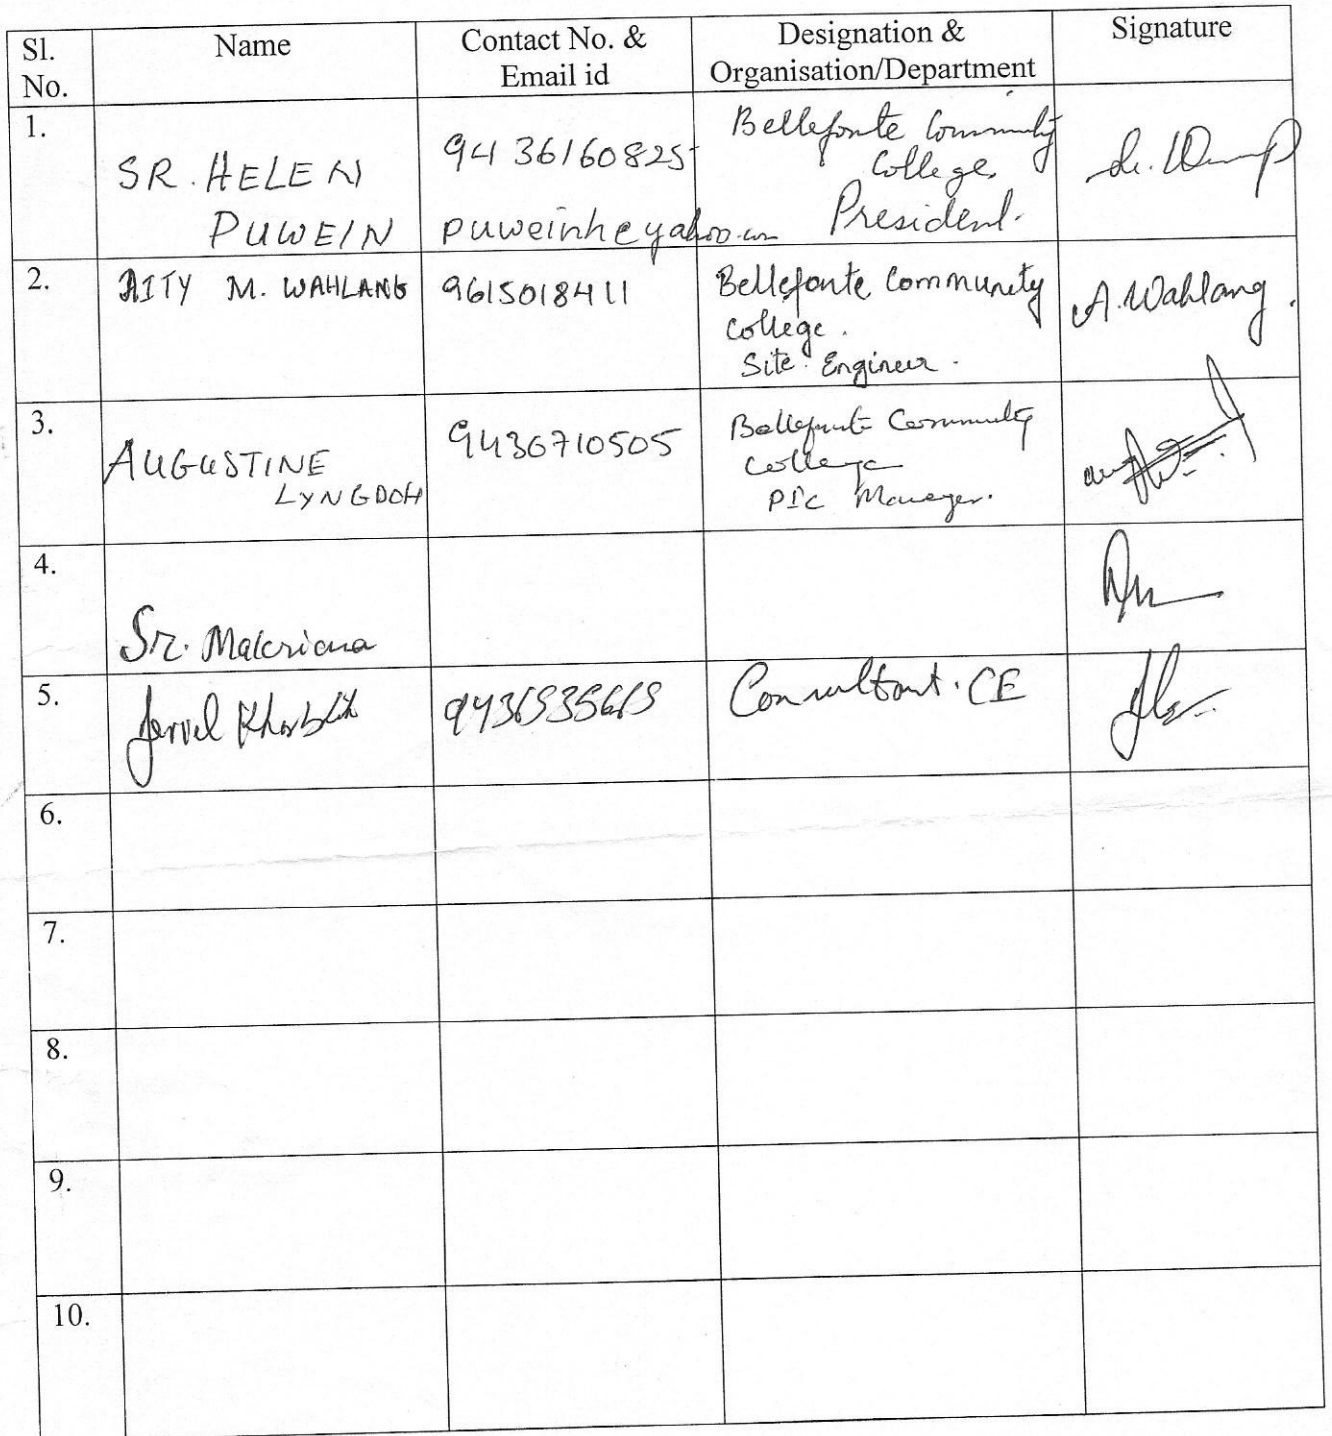 Sl.
No.
Name
Contact No. &
Email id
Designation &
Organisation/Department
Signature
1.
SR. HELEN
PUWEIN
9436160825
puweinhe yahoo.in
Bellefonte Community
College,
President.
2.
AITY M. WAHLANG
9615018411
Bellefonte Community
College.
Site Engineer.
A. Wahlang.
3.
AUGUSTINE
LYNGDOH
9436710505
Bellefonte Community
College
PIC Manager.
4.
Sr. Makriana
5.
Consultant. CE
6.
7.
8.
9.
10.